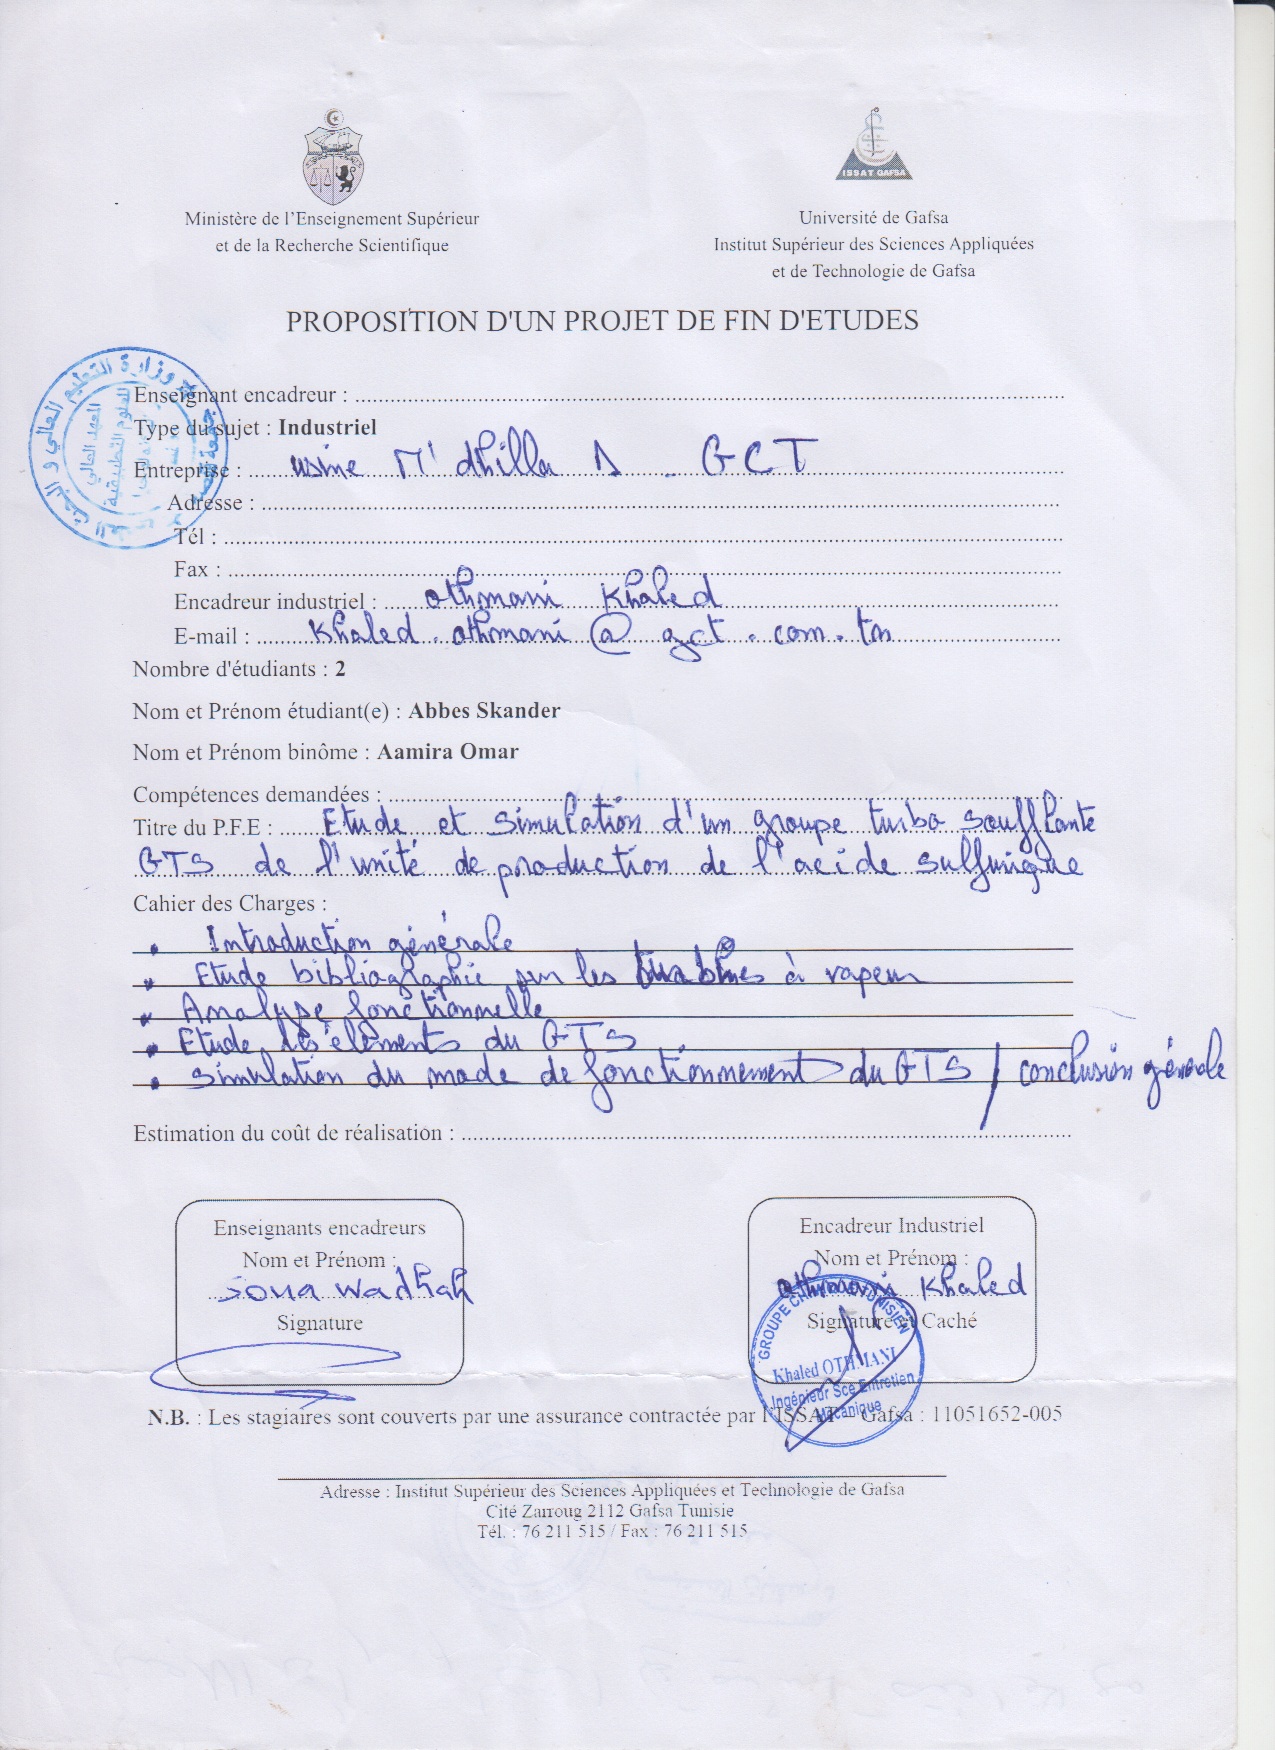 ISSAT GAFSA
Ministère de l'Enseignement Supérieur
et de la Recherche Scientifique
Université de Gafsa
Institut Supérieur des Sciences Appliquées
et de Technologie de Gafsa
PROPOSITION D'UN PROJET DE FIN D'ETUDES
وزارة التعليم العالي و البحث العلمي
المعهد العالي
للعلوم التطبيقية
Enseignant encadreur :
Type du sujet : Industriel
Entreprise : usine M'dhilla 1 . GCT
Adresse :
Tél :
Fax :
Encadreur industriel : Othmani Khaled
E-mail : Khaled.othmani@gct.com.tn
Nombre d'étudiants : 2
Nom et Prénom étudiant(e) : Abbes Skander
Nom et Prénom binôme : Aamira Omar
Compétences demandées :
Titre du P.F.E : Etude et Simulation d'un groupe turbo soufflante
GTS de l'unité de production de l'acide sulfurique
Cahier des Charges :
• Introduction générale
• Etude bibliographie sur les turbines à vapeur
• Analyse fonctionnelle
• Etude des éléments du GTS
• Simulation du mode de fonctionnement du GTS / conclusion générale
Estimation du coût de réalisation :
Enseignants encadreurs
Nom et Prénom :
Soua Wadhah
Signature
Encadreur Industriel
Nom et Prénom :
Othmani Khaled
Signature et Caché
GROUPE CHIMIQUE TUNISIEN
Khaled OTHMANI
Ingénieur Sce Entretien
Mécanique
N.B. : Les stagiaires sont couverts par une assurance contractée par l'ISSAT – Gafsa : 11051652-005
Adresse : Institut Supérieur des Sciences Appliquées et Technologie de Gafsa
Cité Zarroug 2112 Gafsa Tunisie
Tél. : 76 211 515 / Fax : 76 211 515